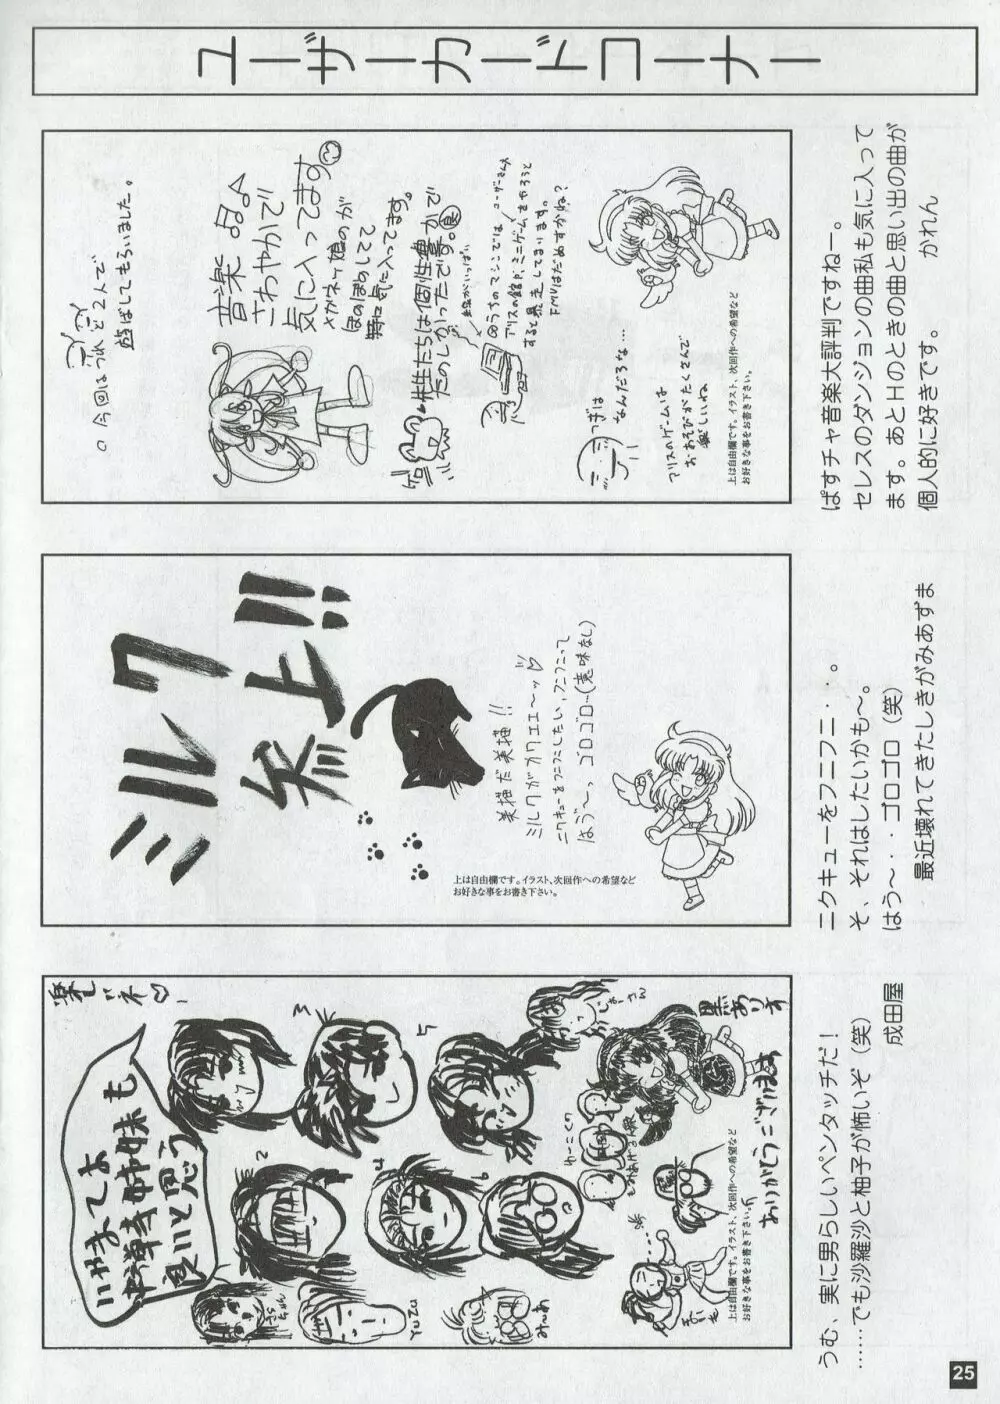 ユーザーカードコーナー
音楽 品♪
さわやかで
気に入ってます
メガネッ娘のが
ほのぼのしてて
特に気に入ってます。
先生たちは個性豊かで
たのしかったです。
絵がいっぱい
うちのマシンでは、ユーザーさんメ
アリスの館で、ミニゲームをやろうと
すると暴走してしまいます。
FMVはだめすかね?
今回はつれと2人で
遊ばしてもらいました。
つぎは
なんだろな…
アリスのゲームは
おあそびがたくさんで
楽しいね
上は自由欄です。イラスト、次回作への希望など
お好きな事をお書き下さい。
ぱすチャ音楽大評判ですねー。
セレスのダンジョンの曲私も気に入って
ます。あとHのときの曲と思い出の曲が
個人的に好きです。 かれん
ミルク
炎上!!
美猫だ美猫!!
ミルクがカワエエ〜ッ♡
ニクキューをフニフニしたい、フニフニって
はう〜っ ゴロゴロ〜(意味なし)
上は自由欄です。イラスト、次回作への希望など
お好きな事をお書き下さい。
ニクキューをフニフニ・・。
そ、それはしたいかも〜。
はう〜・・ゴロゴロ(笑)
最近壊れてきたしきがみあずま
いやまてよ
お導寺姉妹も
良いと思う
2
3
4
5
6
YUZU
みんあ
ゆーこくん
もみあげる人隊
黒ありす
ありがとうございます
上は自由欄です。イラスト、次回作への希望など
お好きな事をお書き下さい。
うむ、実に男らしいペンタッチだ!
……でも沙羅沙と柚子が怖いぞ(笑)
成田屋
25